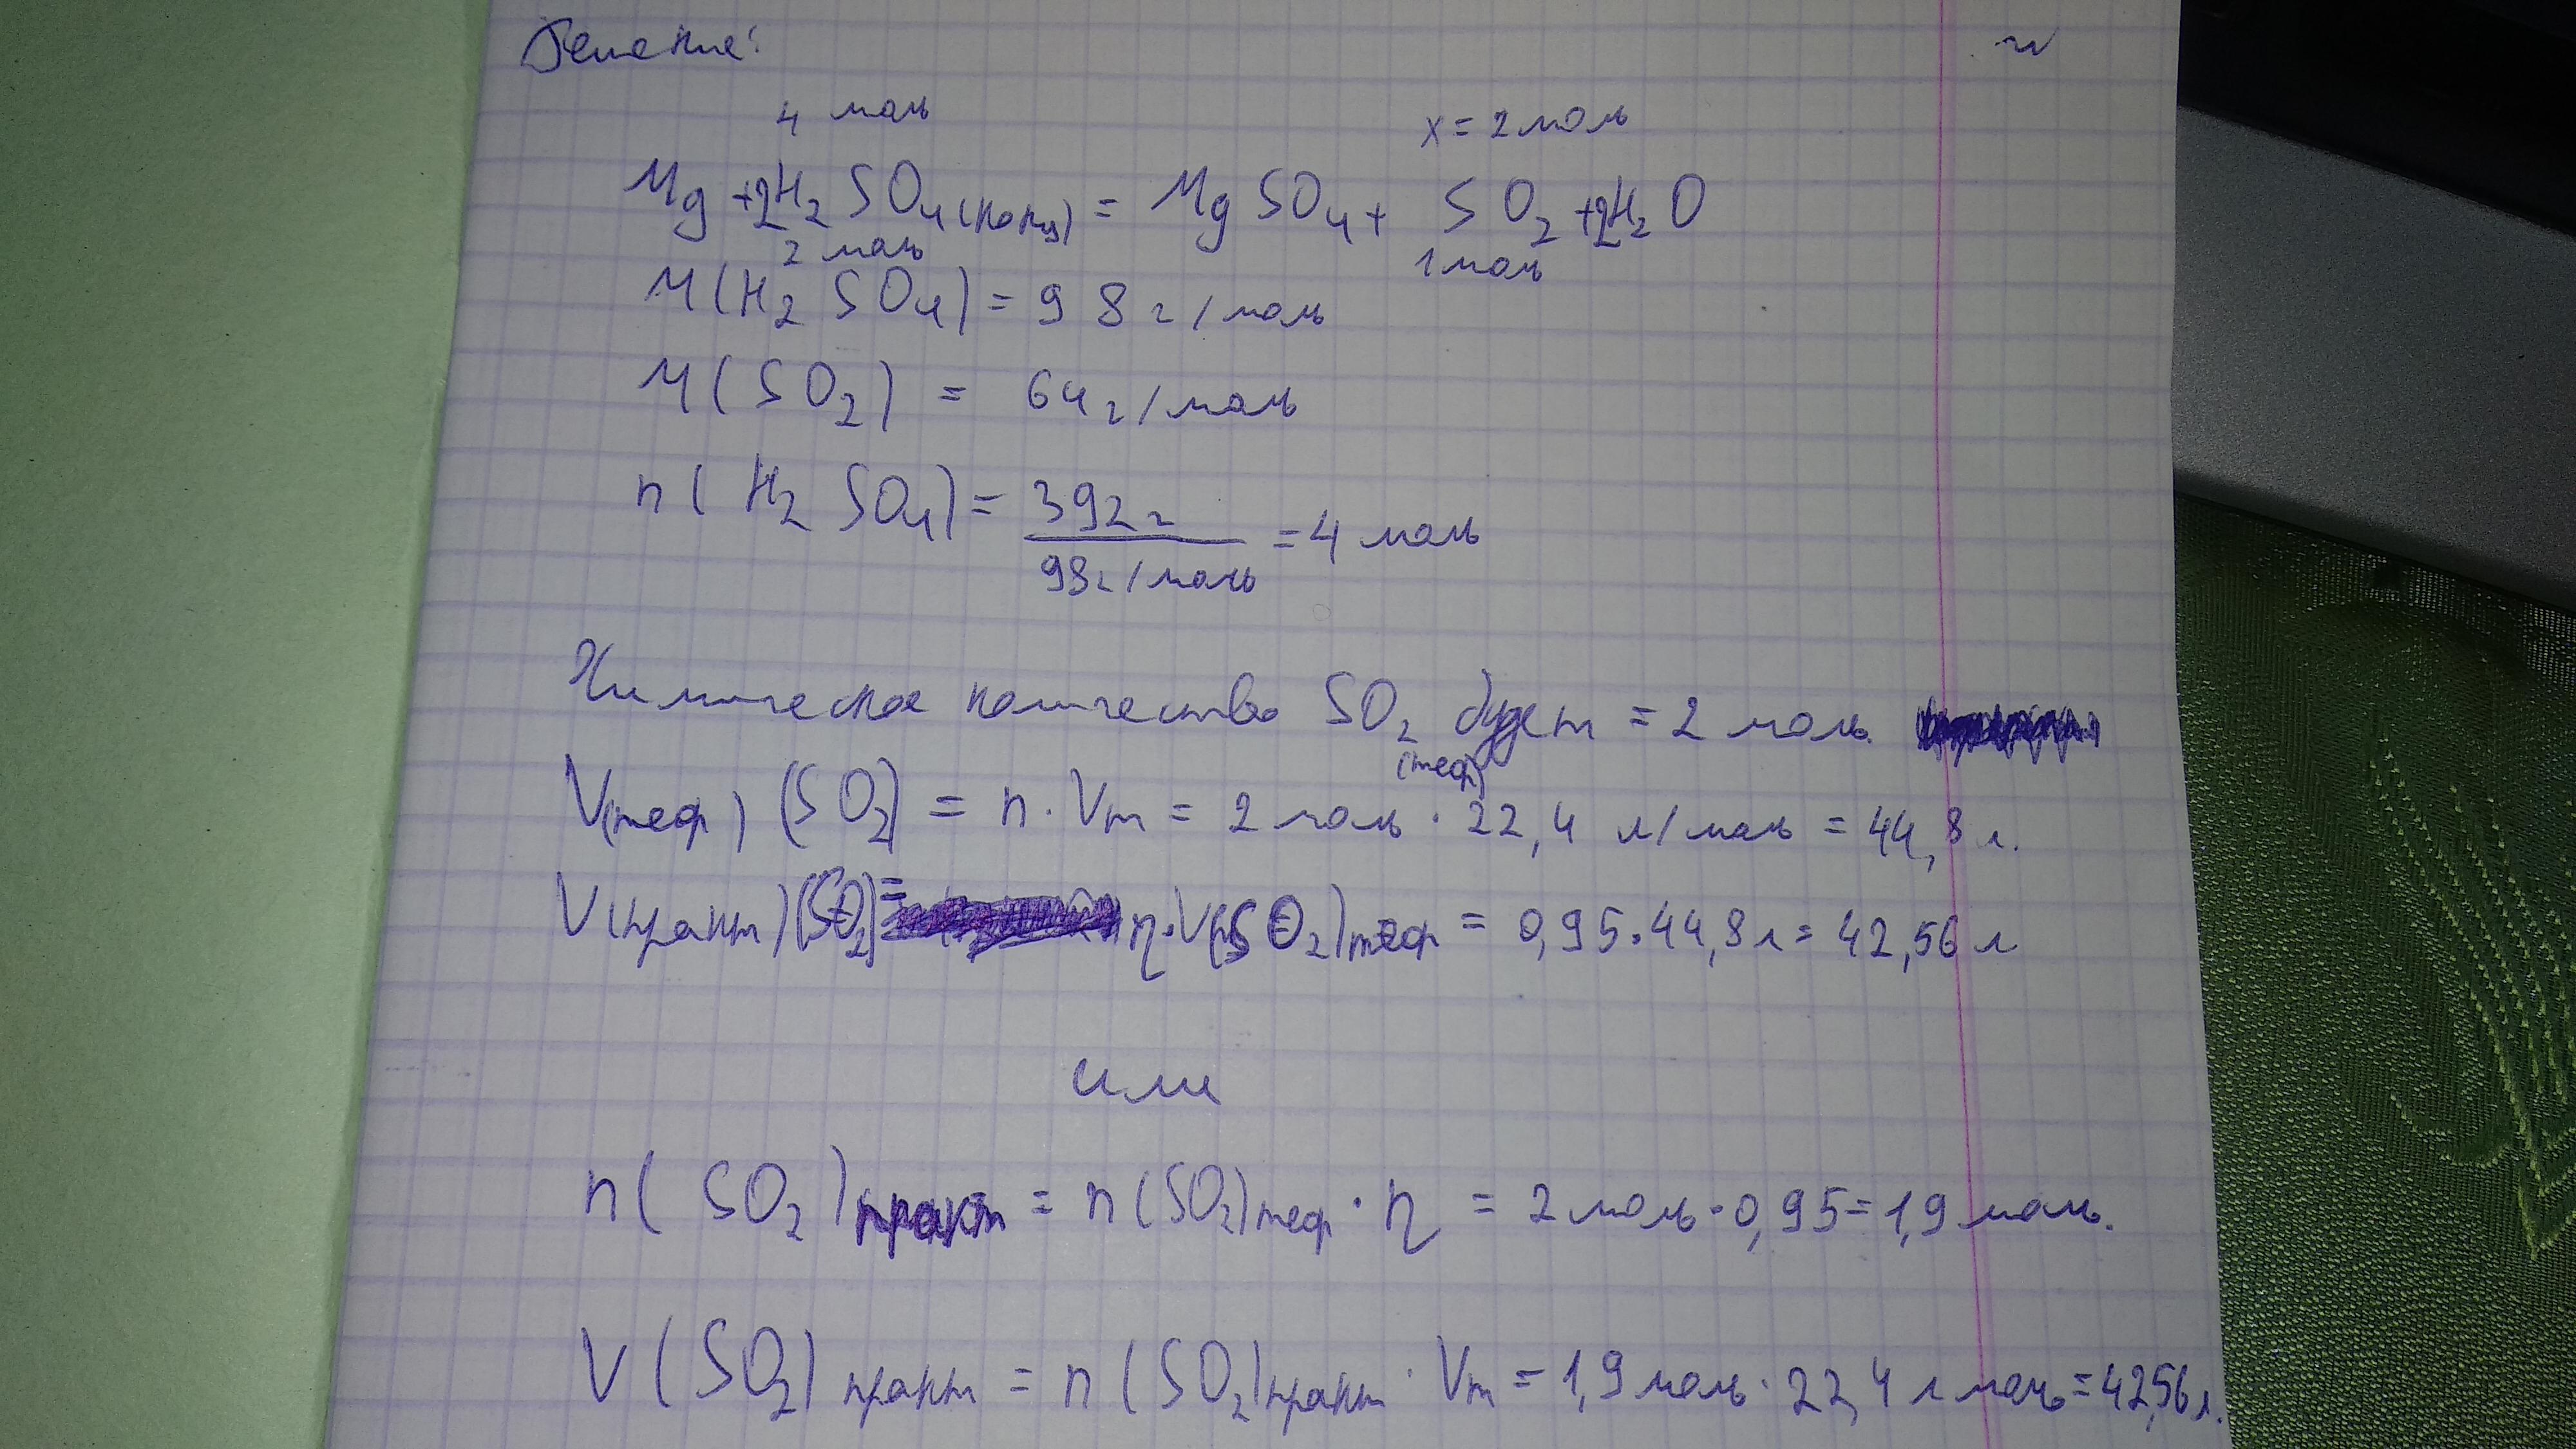 Решение:
4 моль x = 2 моль
Mg + 2H2SO4(конц) = MgSO4 + SO2 + 2H2O
2 моль 1 моль
M(H2SO4) = 98 г/моль
M(SO2) = 64 г/моль
n(H2SO4) = 392 г / 98 г/моль = 4 моль
Химическое количество SO2 будет = 2 моль.
(теор)
V(теор) (SO2) = n · Vm = 2 моль · 22,4 л/моль = 44,8 л.
V(практ)(SO2) = η · V(SO2)теор = 0,95 · 44,8 л = 42,56 л
или
n(SO2)практ = n(SO2)теор · η = 2 моль · 0,95 = 1,9 моль.
V(SO2)практ = n(SO2)практ · Vm = 1,9 моль · 22,4 л моль = 42,56 л.